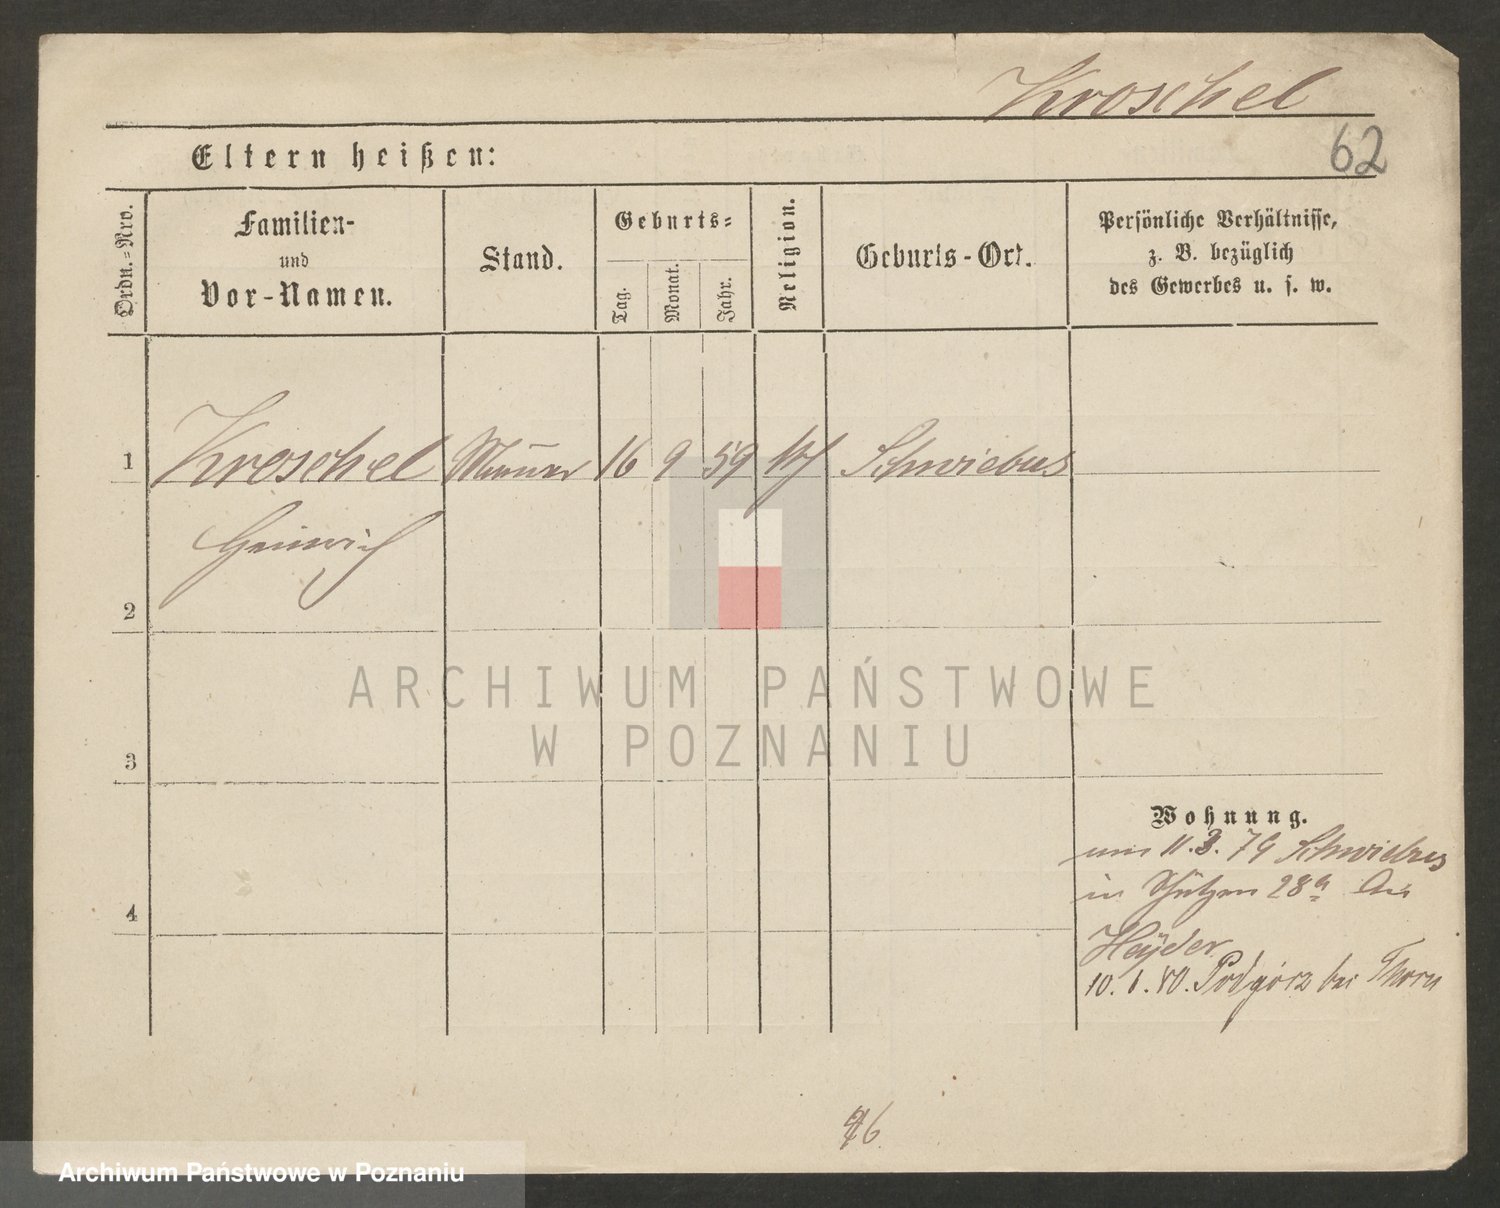 Kroschel
62
Eltern heißen:
Ordn.=Nro.
Familien-
und
Vor-Namen.
Stand.
Geburts=
Tag.
Monat.
Jahr.
Religion.
Geburts-Ort.
Persönliche Verhältnisse,
z. B. bezüglich
des Gewerbes u. s. w.
1 Kroschel Maurer 16 9 59 Schwiebus
Heinrich
2
3
4
Wohnung.
11.3.79 Schwiebus
in Schützen 28a
Heyder
10. 1. 80. Podgorz bei Thorn
ARCHIWUM PAŃSTWOWE
W POZNANIU
Archiwum Państwowe w Poznaniu